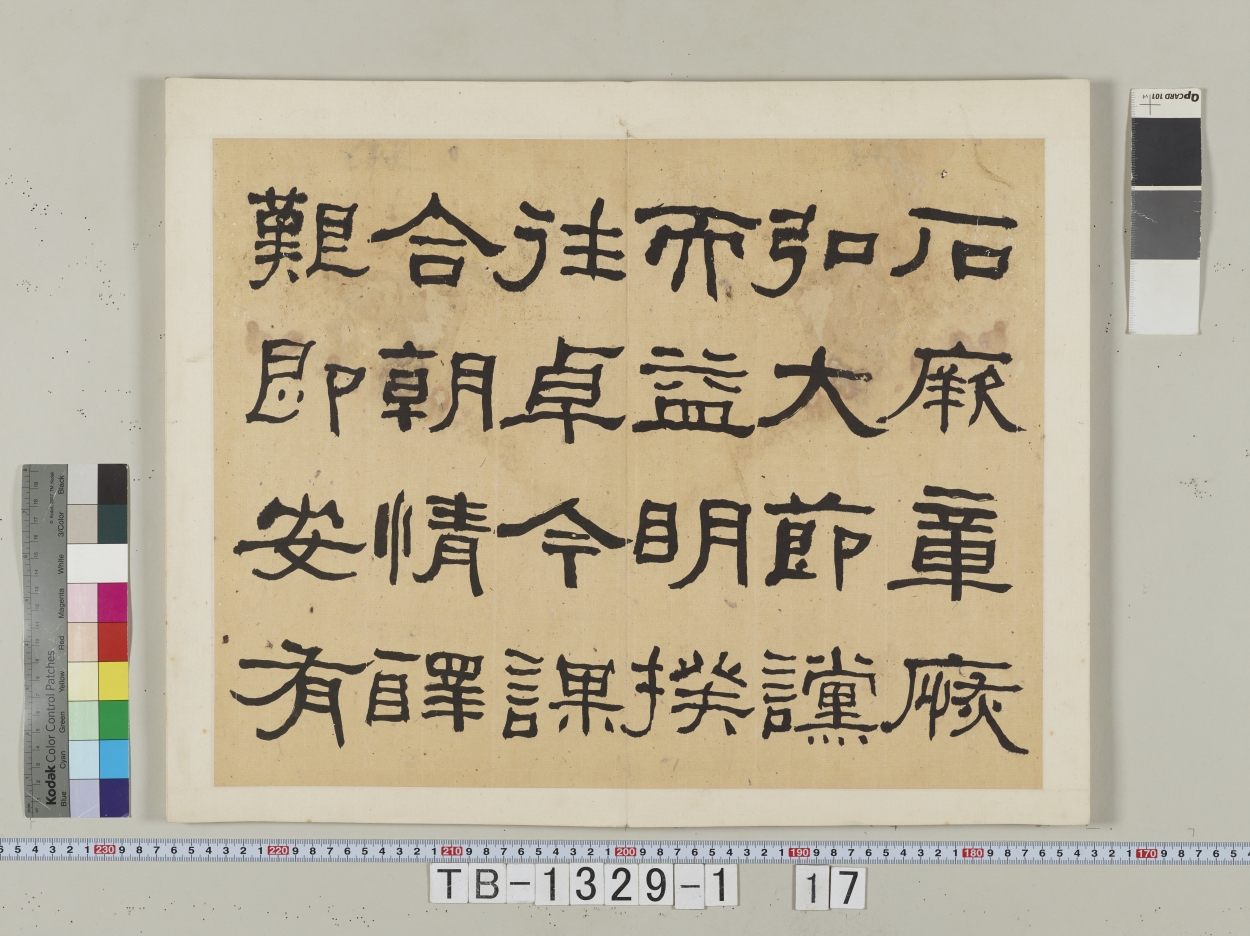 石厥章恢
弘大節讜
而益明揆
往卓今謀
合朝情醳
艱即安有
Kodak Color Control Patches
Blue Cyan Green Yellow Red Magenta White 3/Color Black
QpCARD 101
TB-1329-1 17